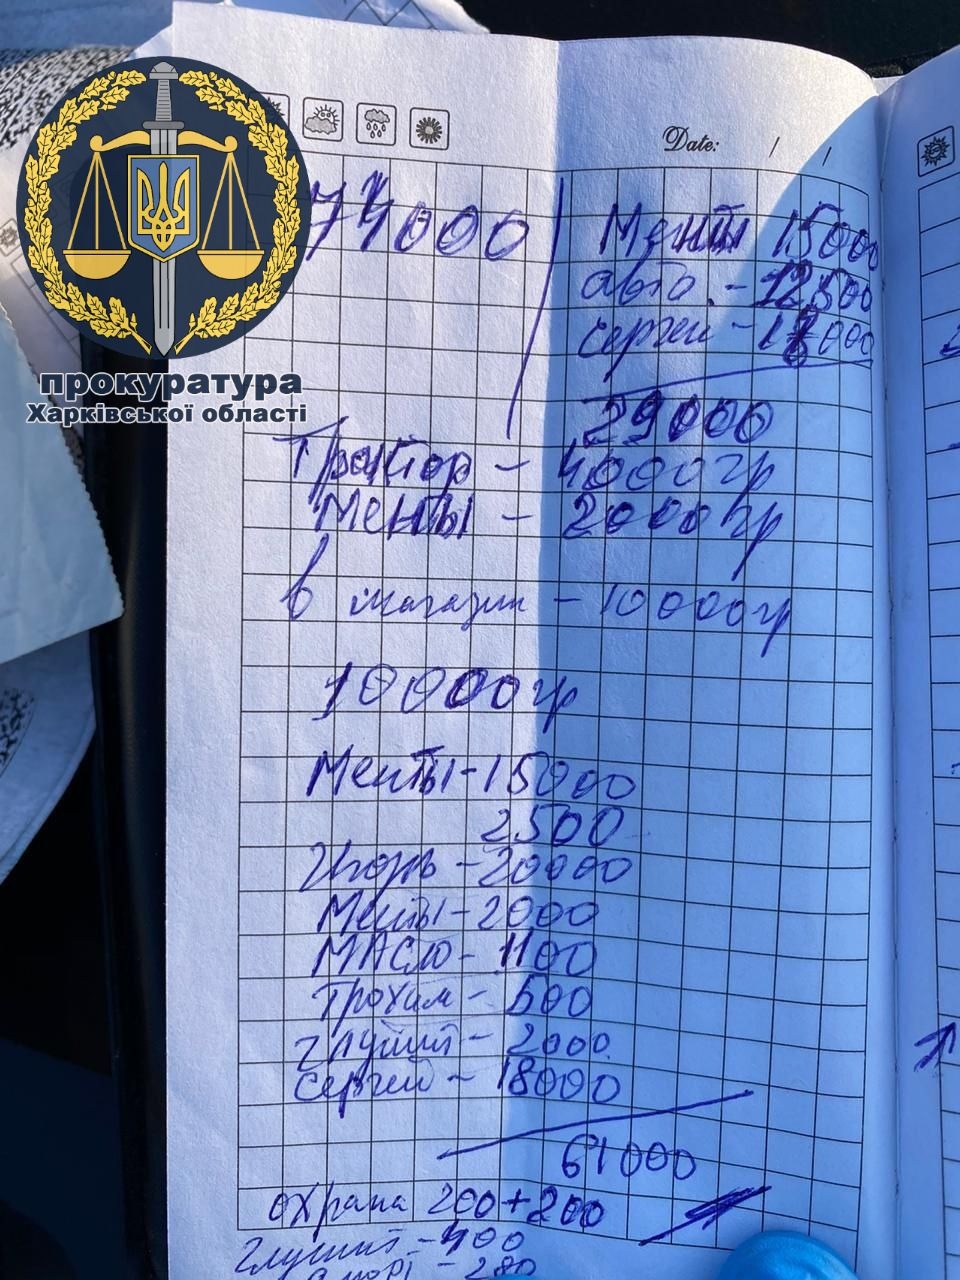 Date: / /
прокуратура
Харківської області
74000
Менты 15000
авто. - 12500
Сергей - 18000
29000
Трактор - 4000гр
Менты - 2000гр
в магазин - 10000гр
10000гр
Менты - 15000
2500
Игорь - 20000
Менты - 2000
МАСЛО - 1100
Трохим - 500
Глухий - 2000
Сергей - 18000
61000
охрана 200+200
Глухий - 400
- 280